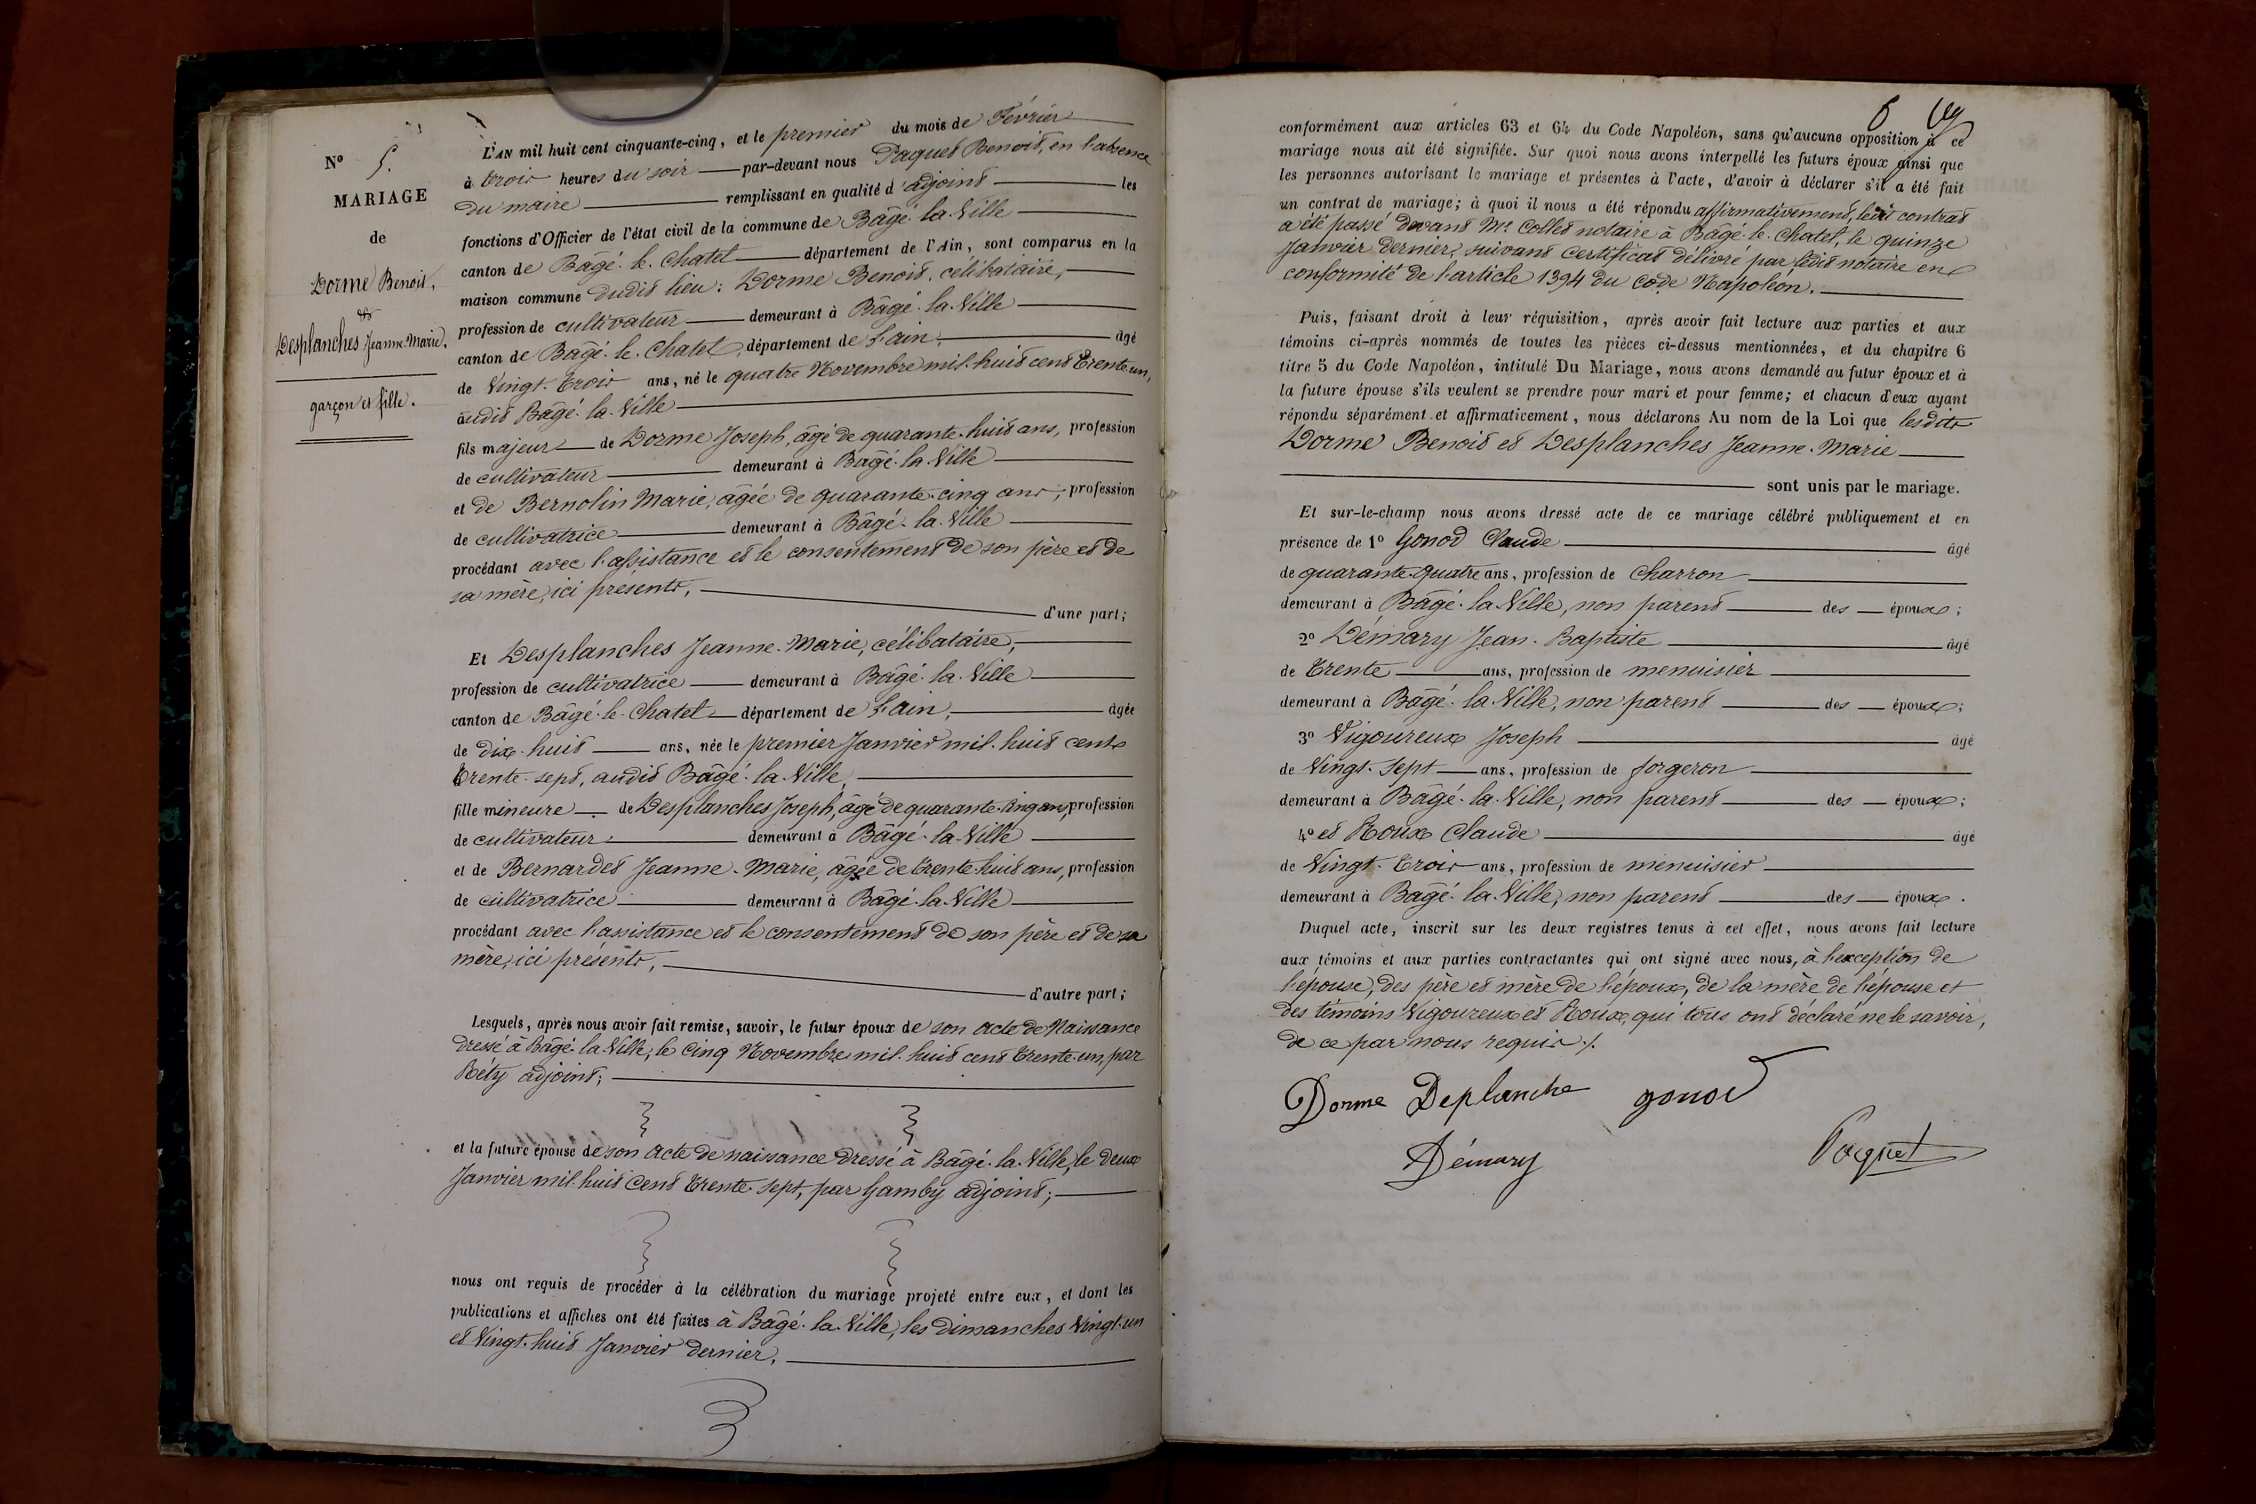 N° 5.
MARIAGE
de
Dorme Benoit,
&
Desplanches Jeanne-Marie.
garçon et fille.
L'AN mil huit cent cinquante-cinq, et le premier du mois de Février
à trois heures du soir par-devant nous Paquet Benoit, en l'absence
du maire remplissant en qualité d'adjoint les
fonctions d'Officier de l'état civil de la commune de Bâgé-la-Ville
canton de Bâgé-le-Chatel département de l'Ain, sont comparus en la
maison commune dudit lieu: Dorme Benoit, célibataire,
profession de cultivateur demeurant à Bâgé-la-Ville
canton de Bâgé-le-Chatel département de l'ain, âgé
de Vingt-trois ans, né le quatre Novembre mil-huit cent trente-un,
audit Bâgé-la-Ville
fils majeur de Dorme Joseph, âgé de quarante-huit ans, profession
de cultivateur demeurant à Bâgé-la-Ville
et de Bernolin Marie, âgée de quarante-cinq ans, profession
de cultivatrice demeurant à Bâgé-la-Ville
procédant avec l'assistance et le consentement de son père et de
sa mère, ici présents, d'une part;
Et Desplanches Jeanne-Marie, célibataire,
profession de cultivatrice demeurant à Bâgé-la-Ville
canton de Bâgé-le-Chatel département de l'ain, âgée
de dix-huit ans, née le premier Janvier mil-huit cent
trente-sept, audit Bâgé-la-Ville,
fille mineure de Desplanches Joseph, âgé de quarante-cinq ans, profession
de cultivateur demeurant à Bâgé-la-Ville
et de Bernardet Jeanne-Marie, âgée de trente-huit ans, profession
de cultivatrice demeurant à Bâgé-la-Ville
procédant avec l'assistance et le consentement de son père et de sa
mère, ici présents, d'autre part;
Lesquels, après nous avoir fait remise, savoir, le futur époux de son acte de Naissance
dressé à Bâgé-la-Ville, le cinq Novembre mil-huit cent trente-un, par
Réty adjoint;
et la future épouse de son acte de naissance dressé à Bâgé-la-Ville, le deux
Janvier mil-huit cent trente-sept, par Gamby adjoint;
nous ont requis de procéder à la célébration du mariage projeté entre eux, et dont les
publications et affiches ont été faites à Bâgé-la-Ville, les dimanches Vingt-un
et Vingt-huit Janvier dernier,
6
conformément aux articles 63 et 64 du Code Napoléon, sans qu'aucune opposition à ce
mariage nous ait été signifiée. Sur quoi nous avons interpellé les futurs époux ainsi que
les personnes autorisant le mariage et présentes à l'acte, d'avoir à déclarer s'il a été fait
un contrat de mariage; à quoi il nous a été répondu affirmativement, ledit contrat
a été passé devant Me Collet notaire à Bâgé-le-Chatel, le quinze
Janvier dernier, suivant certificat délivré par ledit notaire en
conformité de l'article 1394 du code Napoléon.
Puis, faisant droit à leur réquisition, après avoir fait lecture aux parties et aux
témoins ci-après nommés de toutes les pièces ci-dessus mentionnées, et du chapitre 6
titre 5 du Code Napoléon, intitulé Du Mariage, nous avons demandé au futur époux et à
la future épouse s'ils veulent se prendre pour mari et pour femme; et chacun d'eux ayant
répondu séparément et affirmaticement, nous déclarons Au nom de la Loi que lesdits
Dorme Benoit et Desplanches Jeanne-Marie
sont unis par le mariage.
Et sur-le-champ nous avons dressé acte de ce mariage célébré publiquement et en
présence de 1° Gonod Claude âgé
de quarante-quatre ans, profession de charron
demeurant à Bâgé-la-Ville, non parent des époux;
2° Démary Jean-Baptiste âgé
de trente ans, profession de menuisier
demeurant à Bâgé-la-Ville, non parent des époux;
3° Vigoureux Joseph âgé
de Vingt-sept ans, profession de forgeron
demeurant à Bâgé-la-Ville, non parent des époux;
4° et Roux Claude âgé
de Vingt-trois ans, profession de menuisier
demeurant à Bâgé-la-Ville, non parent des époux.
Duquel acte, inscrit sur les deux registres tenus à cet effet, nous avons fait lecture
aux témoins et aux parties contractantes qui ont signé avec nous, à l'exception de
l'épouse, des père et mère de l'époux, de la mère de l'épouse et
des témoins Vigoureux et Roux, qui tous ont déclaré ne le savoir,
de ce par nous requis./.
Dorme Deplanche gonod
Démary Paquet